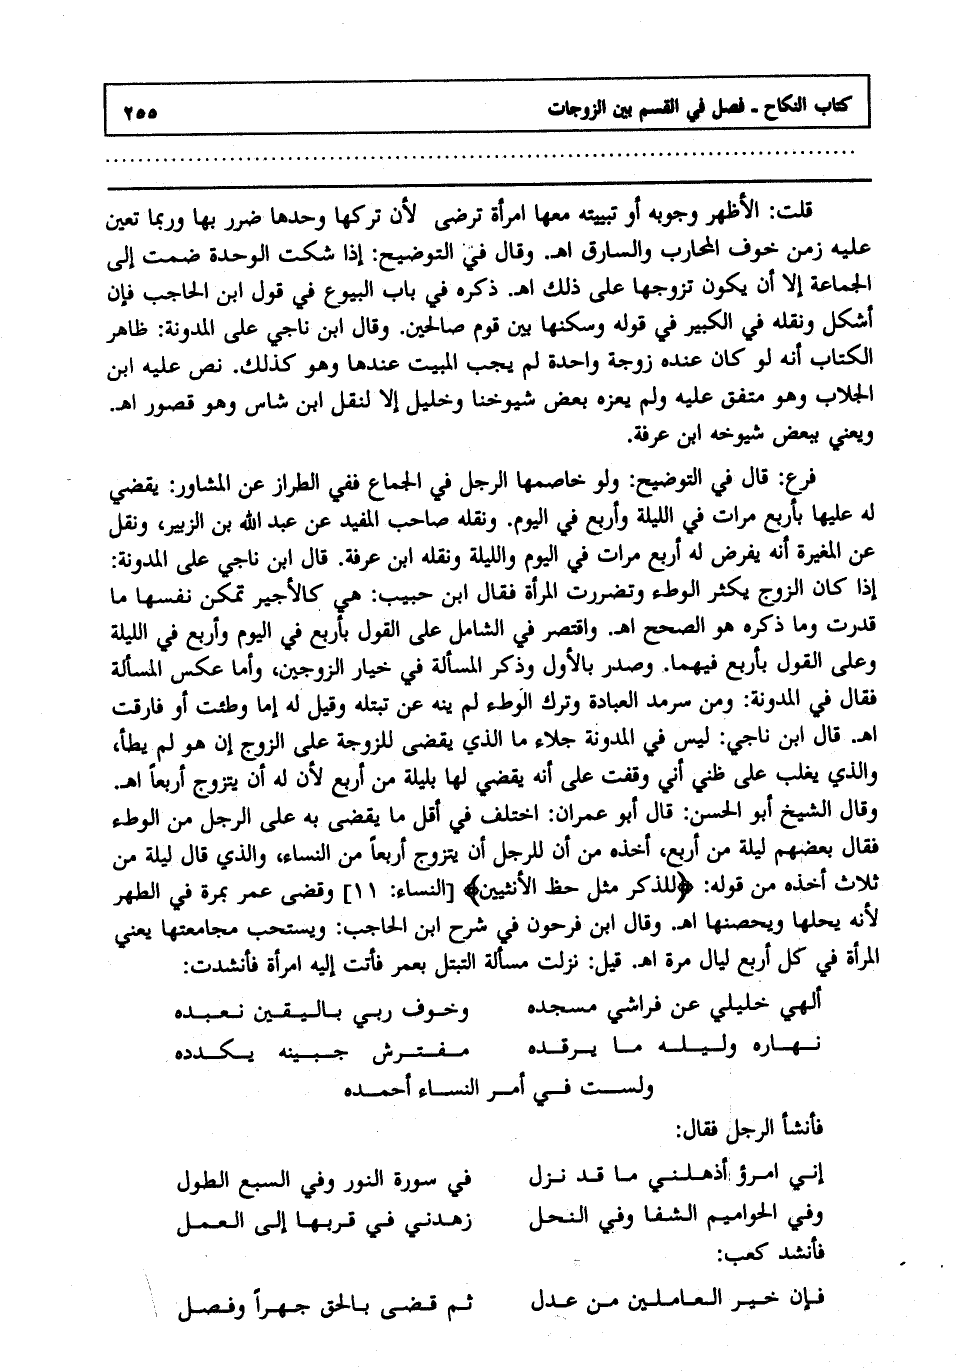 كتاب النكاح ـ فصل في القسم بين الزوجات ٢٥٥
قلت: الأظهر وجوبه أو تبييته معها امرأة ترضى لأن تركها وحدها ضرر بها وربما تعين
عليه زمن خوف المحارب والسارق اهـ. وقال في التوضيح: إذا شكت الوحدة ضمت إلى
الجماعة إلا أن يكون تزوجها على ذلك اهـ. ذكره في باب البيوع في قول ابن الحاجب فإن
أشكل ونقله في الكبير في قوله وسكنها بين قوم صالحين. وقال ابن ناجي على المدونة: ظاهر
الكتاب أنه لو كان عنده زوجة واحدة لم يجب المبيت عندها وهو كذلك. نص عليه ابن
الجلاب وهو متفق عليه ولم يعزه بعض شيوخنا وخليل إلا لنقل ابن شاس وهو قصور اهـ.
ويعني ببعض شيوخه ابن عرفة.
فرع: قال في التوضيح: ولو خاصمها الرجل في الجماع ففي الطراز عن المشاور: يقضي
له عليها بأربع مرات في الليلة وأربع في اليوم. ونقله صاحب المفيد عن عبد الله بن الزبير، ونقل
عن المغيرة أنه يفرض له أربع مرات في اليوم والليلة ونقله ابن عرفة. قال ابن ناجي على المدونة:
إذا كان الزوج يكثر الوطء وتضررت المرأة فقال ابن حبيب: هي كالأجير تمكن نفسها ما
قدرت وما ذكره هو الصحح اهـ. واقتصر في الشامل على القول بأربع في اليوم وأربع في الليلة
وعلى القول بأربع فيهما. وصدر بالأول وذكر المسألة في خيار الزوجين، وأما عكس المسألة
فقال في المدونة: ومن سرمد العبادة وترك الوطء لم ينه عن تبتله وقيل له إما وطئت أو فارقت
اهـ. قال ابن ناجي: ليس في المدونة جلاء ما الذي يقضى للزوجة على الزوج إن هو لم يطأ،
والذي يغلب على ظني أني وقفت على أنه يقضي لها بليلة من أربع لأن له أن يتزوج أربعاً اهـ.
وقال الشيخ أبو الحسن: قال أبو عمران: اختلف في أقل ما يقضى به على الرجل من الوطء
فقال بعضهم ليلة من أربع، أخذه من أن للرجل أن يتزوج أربعاً من النساء، والذي قال ليلة من
ثلاث أخذه من قوله: ﴿للذكر مثل حظ الأنثيين﴾ [النساء: ١١] وقضى عمر بمرة في الطهر
لأنه يحلها ويحصنها اهـ. وقال ابن فرحون في شرح ابن الحاجب: ويستحب مجامعتها يعني
المرأة في كل أربع ليال مرة اهـ. قيل: نزلت مسألة التبتل بعمر فأتت إليه امرأة فأنشدت:
ألهي خليلي عن فراشي مسجده وخوف ربي باليقين نعبده
نهاره وليله ما يرقده مفترش جبينه يكدده
ولست في أمر النساء أحمده
فأنشأ الرجل فقال:
إني امرؤ أذهلني ما قد نزل في سورة النور وفي السبع الطول
وفي الحواميم الشفا وفي النحل زهدني في قربها إلى العمل
فأنشد كعب:
فإن خير العاملين من عدل ثم قضى بالحق جهراً وفصل